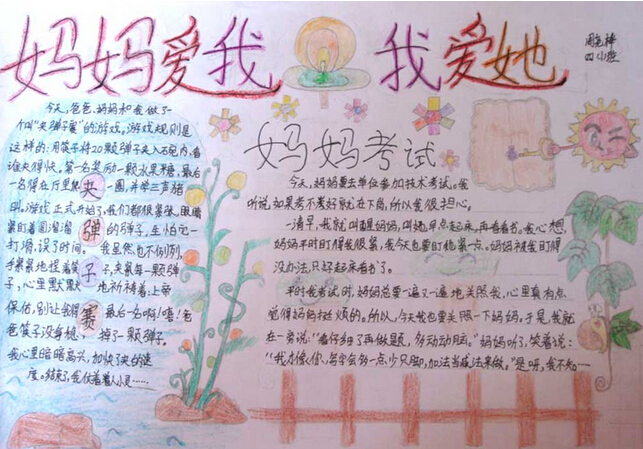 妈妈爱我 我爱她
今天,爸爸、妈妈和我做了一
个叫“夹弹子赛”的游戏。游戏规则是
这样的:用筷子将20颗弹子夹入石碗内,看
谁夹得快。第一名奖励一颗水果糖,最后
一名得在厅里爬一圈,并学三声猪
叫。游戏正式开始了,我们都很紧张,眼睛
紧盯着圆溜溜的弹子,生怕它一
打滑,误了时间。我虽然也不例外,
手紧紧地捏着筷子,夹紧每一颗弹
子,心里默默地祈祷着:上帝
保佑,别让我得最后一名啊!嘻!爸
爸筷子没身稳,掉了一颗弹子。
我心里暗暗高兴,加快了夹的速
度。结束了,我
夹
弹
子
赛
妈妈考试
今天,妈妈要去单位参加技术考试。我
听说,如果考不好就在下岗,所以我很担心。
一清早,我就叫醒妈妈,叫她早点起床,再看看书。我心想,
妈妈平时盯得我很紧,我今天也要盯她紧一点。妈妈被我盯得
没办法,只好起床看书了。
平时我考试时,妈妈总要一遍又一遍地关照我,心里真有点
觉得妈妈挺烦的。所以,今天我也要关照一下妈妈。于是,我就
在一旁说:“看仔细了再做题,多动动脑。”妈妈听了,笑着说:
“我才像你,
加法当减法来做。”是呀,我不知……